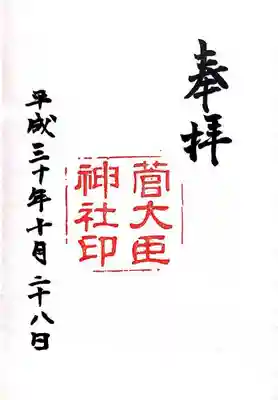 奉拝
菅大臣
神社印
平成三十年十月二十八日